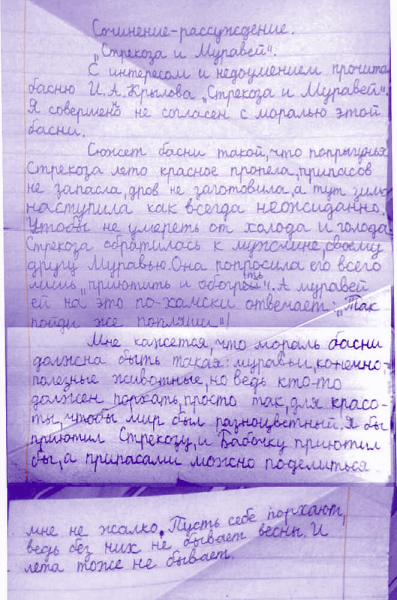 Сочинение-рассуждение.
„Стрекоза и Муравей“.
С интересом и недоумением прочита
басню И.А.Крылова „Стрекоза и Муравей“.
Я совершенно не согласен с моралью этой
басни.
Сюжет басни такой, что попрыгунья
Стрекоза лето красное пропела, припасов
не запасла, дров не заготовила, а тут зима
наступила как всегда неожиданно.
Чтобы не умереть от холода и голода
Стрекоза обратилась к мужчине, своему
другу Муравью. Она попросила его всего
лишь „приютить и обогреть“. А муравей
ей на это по-хамски отвечает: „Так
пойди же попляши“!
Мне кажется, что мораль басни
должна быть такая: муравьи, конечно-
полезные животные, но ведь кто-то
должен порхать, просто так, для красо-
ты, чтобы мир был разноцветный. Я бы
приютил Стрекозу, и Бабочку приютил
бы, а припасами можно поделиться
мне не жалко. Пусть себе порхают,
ведь без них не бывает весны. И
лета тоже не бывает.